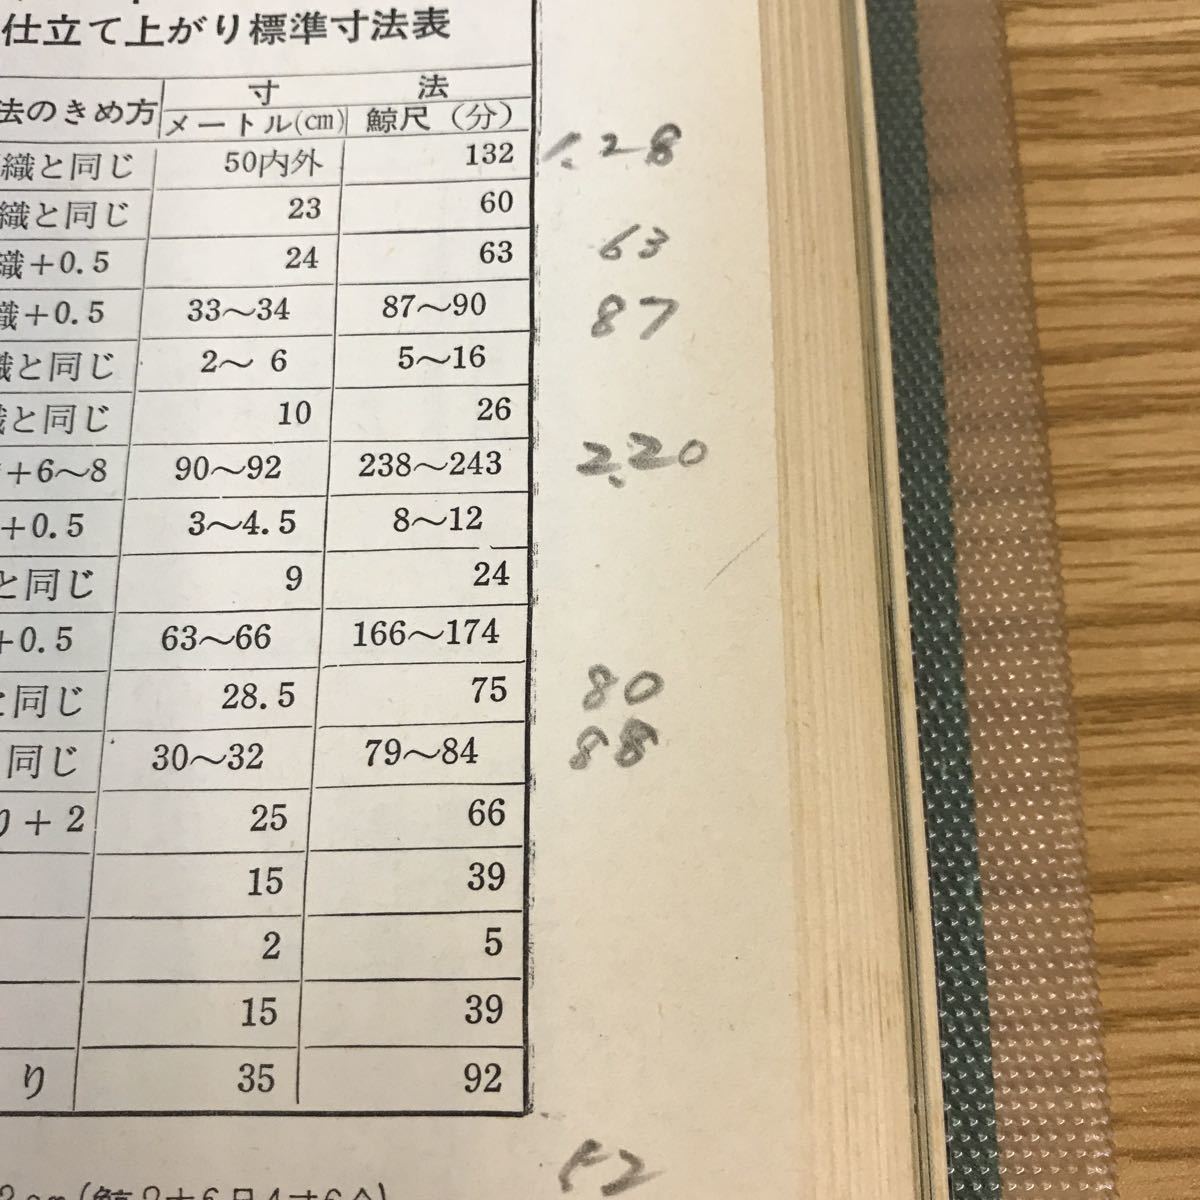 仕立て上がり標準寸法表
法のきめ方 寸 法
メートル(cm) 鯨尺（分）
織と同じ 50内外 132 1.28
織と同じ 23 60
織＋0.5 24 63 63
織＋0.5 33〜34 87〜90 87
織と同じ 2〜 6 5〜16
織と同じ 10 26
＋6〜8 90〜92 238〜243 2.20
＋0.5 3〜4.5 8〜12
と同じ 9 24
＋0.5 63〜66 166〜174
と同じ 28.5 75 80
同じ 30〜32 79〜84 88
り＋2 25 66
15 39
2 5
15 39
り 35 92